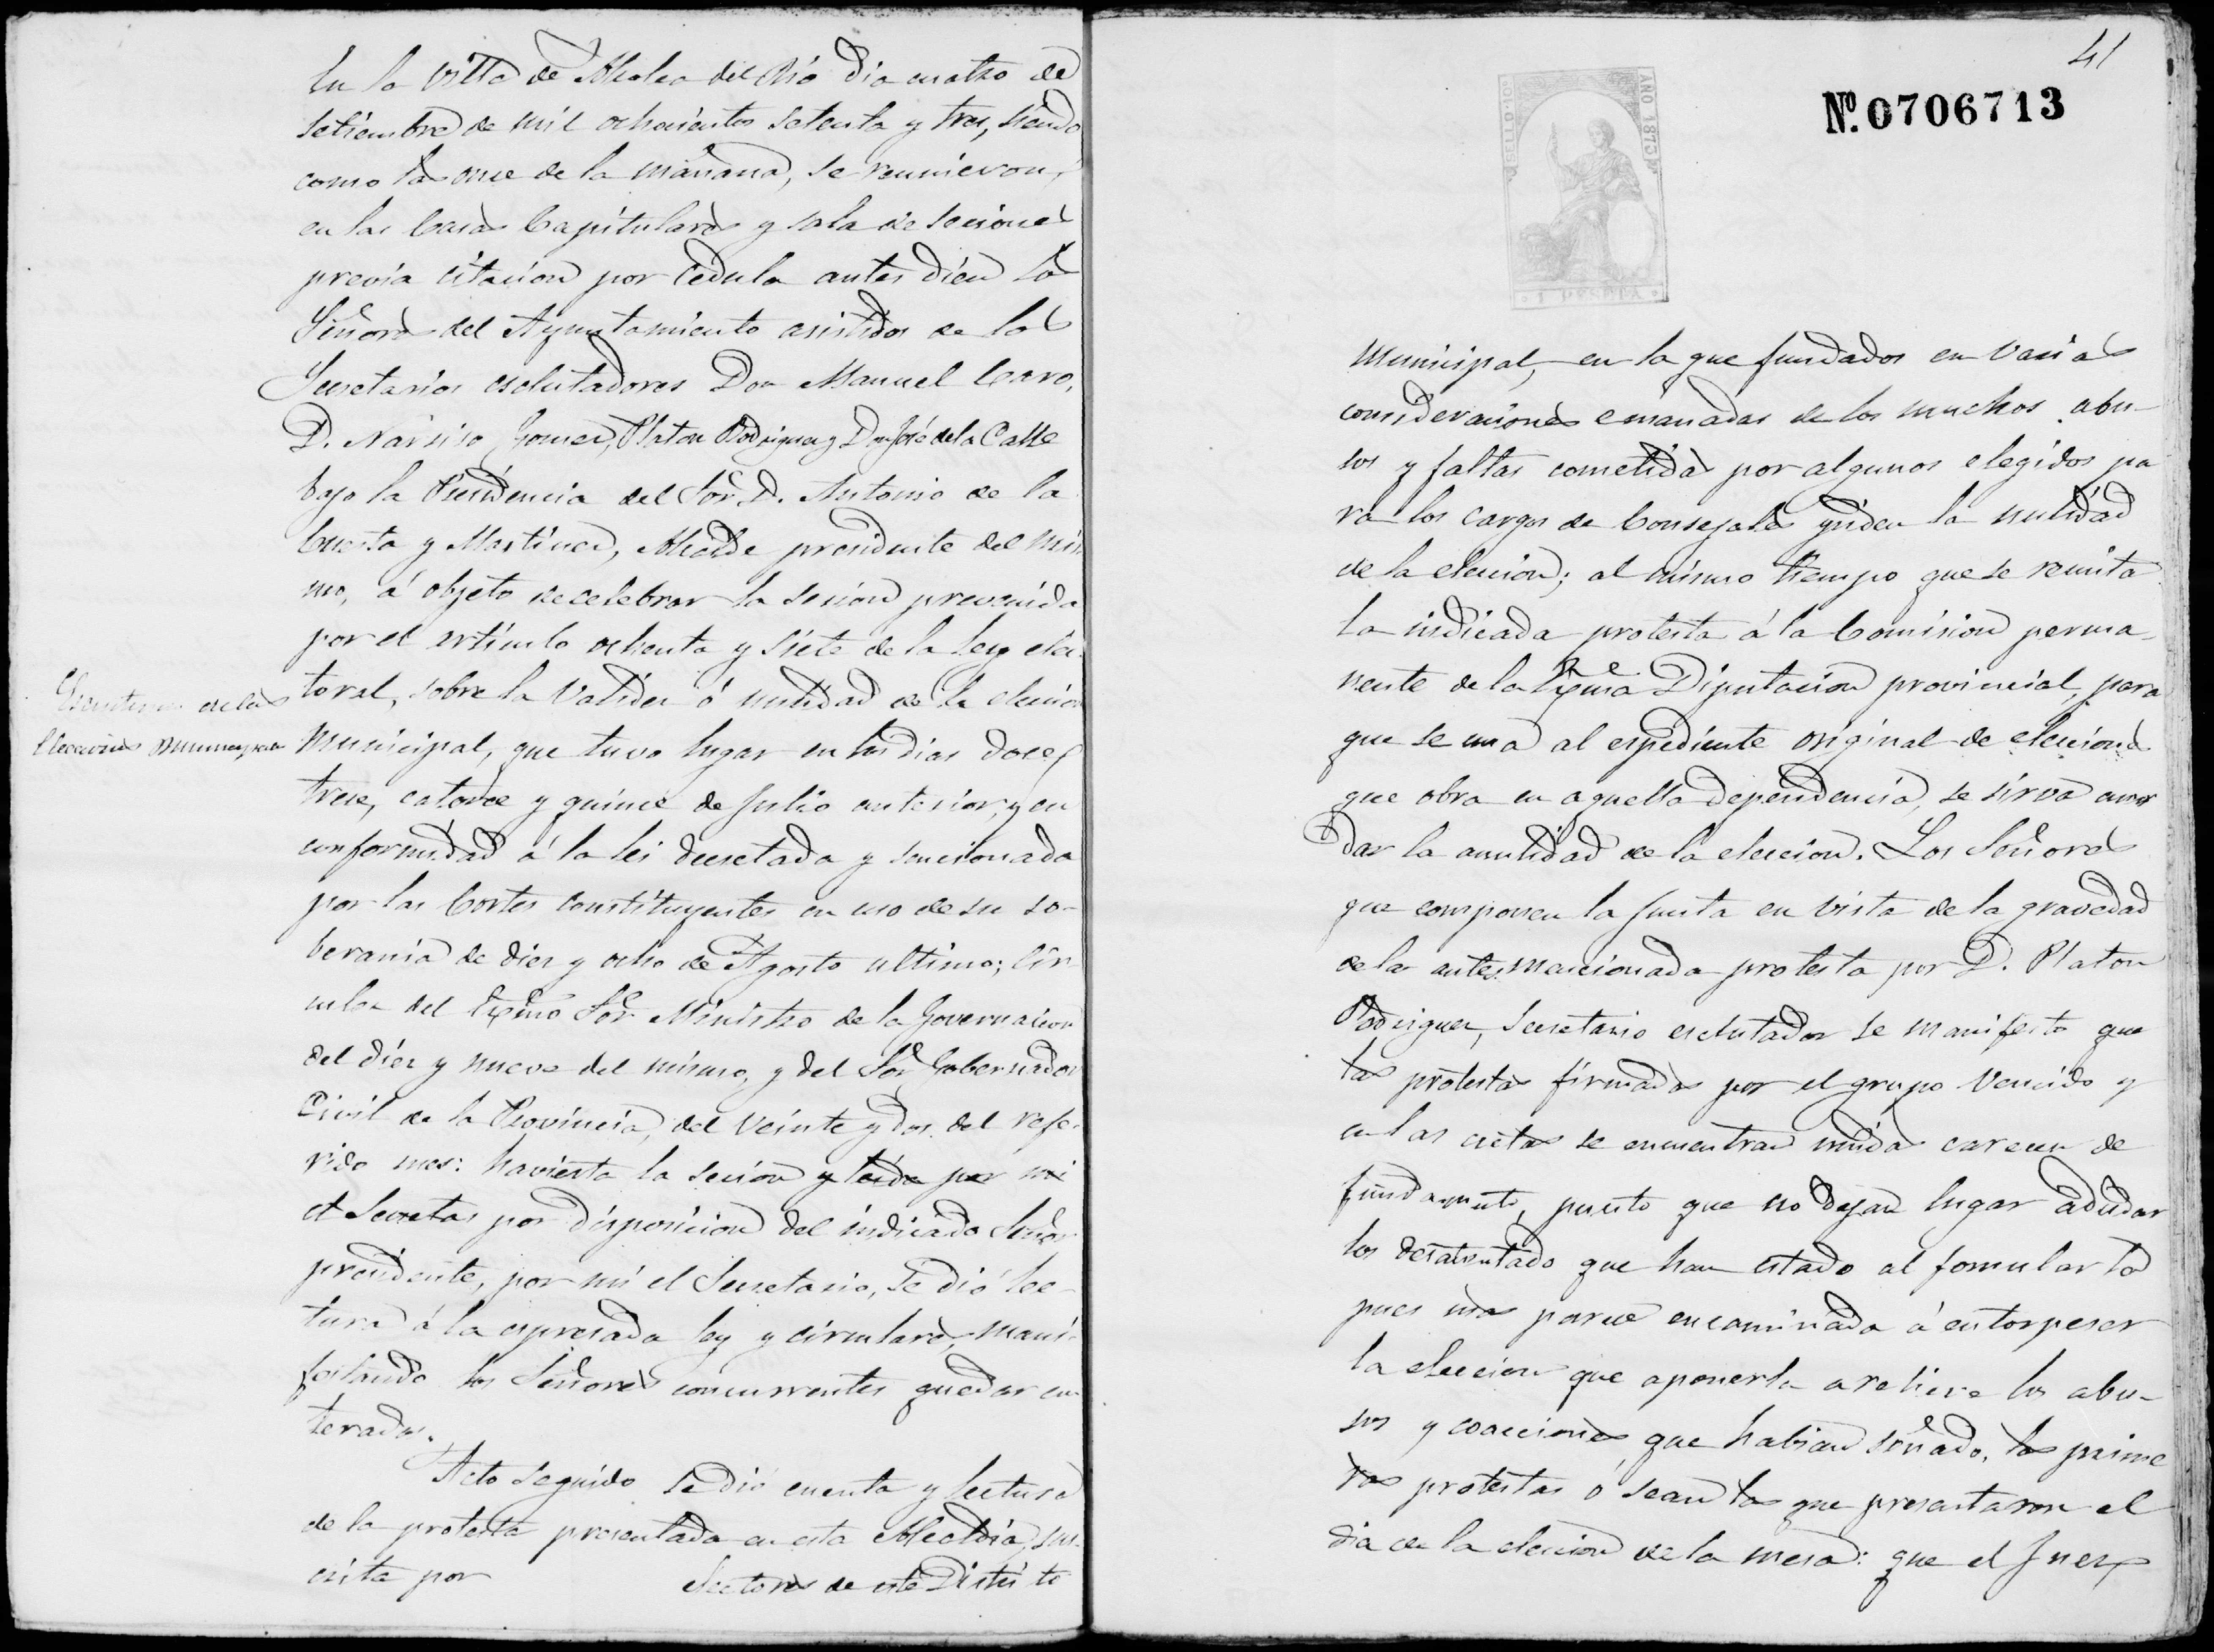 En la Villa de Alcalea del Rio dia cuatro de
Setiembre de mil ochocientos setenta y tres, siendo
como las once de la mañana, se reunieron,
en las Casas Capitulares y sala de seciones
previa citacion por cedula antes diem los
Señores del Ayuntamiento asistidos de los
Secretarios esclutadores Don Manuel Caro,
D. Narsiso Gomez, Platon Rodriguez y Don José de la Calle
bajo la Presidencia del Sor. D. Antonio de la
Cuesta y Martinez, Alcalde presidente del mis
mo, á objeto de celebrar la sesion prevenida
por el articulo ochenta y siete de la Ley elec
toral, sobre la validez ó nulidad de la elecion
Escrutinio de las
Elecciones Municipales
Municipal, que tuvo lugar en los dias doce,
trece, catorce y quince de Julio anterior; y en
conformidad á la lei decretada y sancionada
por las Cortes Constituyentes en uso de su so-
berania de diez y ocho de Agosto ultimo; Cir
cular del Exmo Sor Ministro de la Governacion
del diez y nueve del mismo, y del Sor Gobernador
Civil de la Provincia, del veinte y dos del refe-
rido mes: havierta la secion y leida por mi
el Secretas por disposicion del indicado Señor
presidente, por mi el Secretario, se dió lec-
tura á la espresada ley y circulares, mani-
festando los Señores concurrentes quedar en
terados.
Acto seguido se dió cuenta y lectura
de la protesta presentada en esta Alcaldia, sus-
crita por electores de este Distrito
41
Nº. 0706713
SELLO 10º
AÑO 1873
1 PESETA
Municipal, en la que fundados en varias
consideraciones emanadas de los muchos abu-
sos y faltas cometidas por algunos elegidos pa
ra los cargos de Consejales piden la nulidad
de la elecion; al mismo tiempo que se remita
la indicada protesta á la Comision perma-
nente de la Exma Diputacion provincial, para
que se una al espediente original de eleciones
que obra en aquella dependencia, se sirva acor
dar la anulidad de la elecion. Los Señores
que componen la Junta en vista de la gravedad
de la antes mencionada protesta por D. Platon
Rodriguez, Secretario esclutador se manifesto que
las protestas firmadas por el grupo vencido y
en las actas se encuentran unidas carecen de
fundamento, puesto que no dejan lugar adudar
los desatentado que han estado al formularla
pues mas parece encaminada á entorpeser
la eleccion que aponerla a relieve los abu-
sos y coacciones que habian soñado, las prime
ras protestas ó sean las que presentaron el
dia de la elecion de la mesa: que el Juez